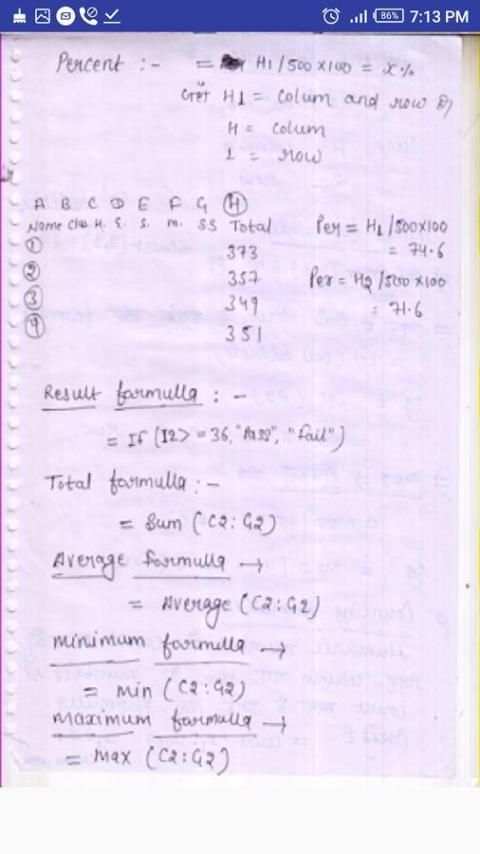 86% 7:13 PM
Percent :- = H1/500x100 = x%
H1 = Colum and row
H = Colum
1 = row
A B C D E F G H
Name Cls H. E. S. m. SS Total Per = H1/500x100
① 373 = 74.6
② 357 Per = H2/500x100
③ 349 = 71.6
④ 351
Result farmulla :-
= If (I2>=36,"Pass", "fail")
Total farmulla :-
= Sum (C2:G2)
Average farmulla →
= Average (C2:G2)
minimum farmulla →
= min (C2:G2)
maximum farmulla →
= Max (C2:G2)